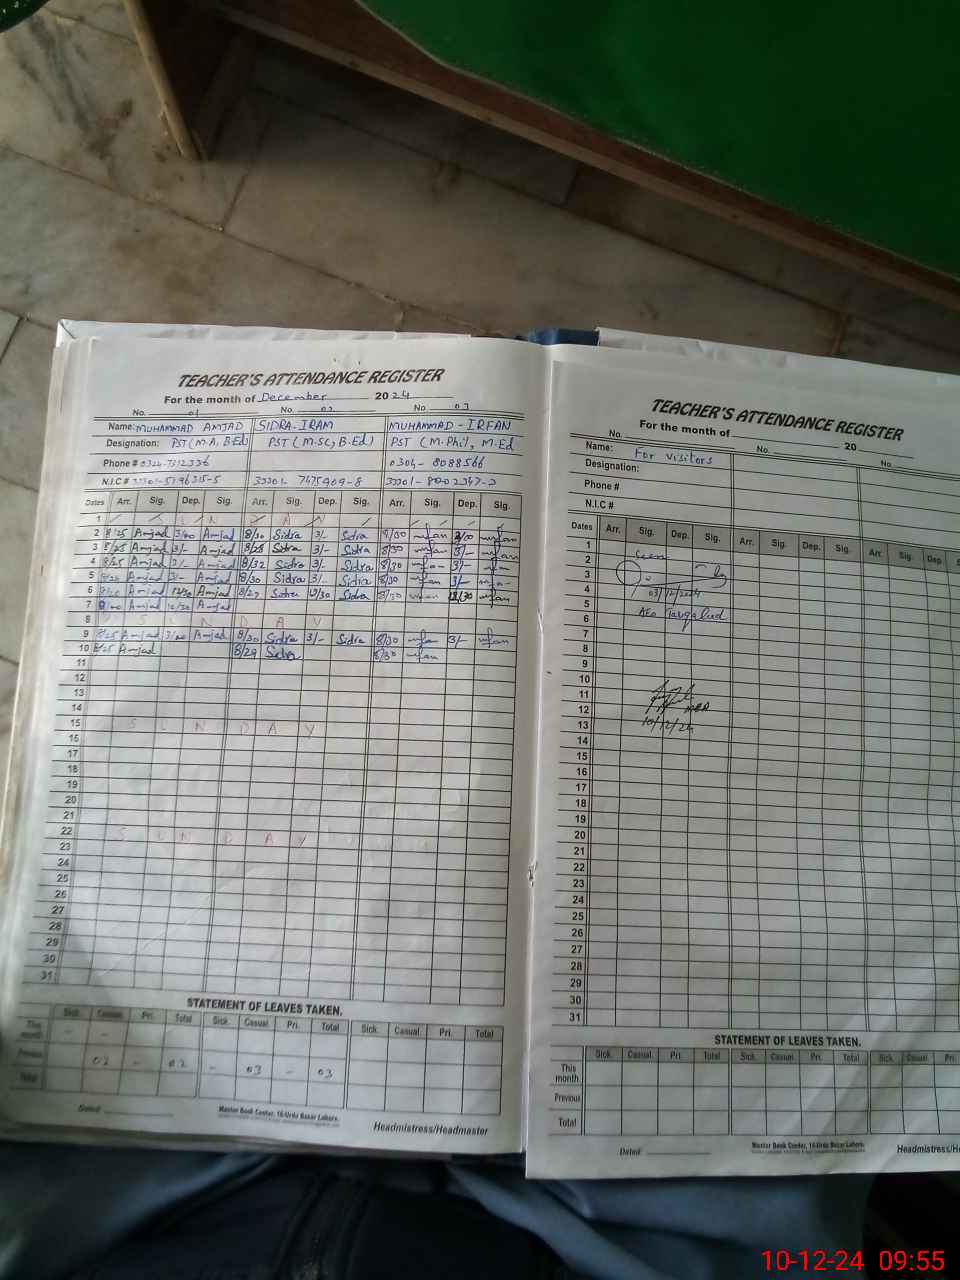 TEACHER'S ATTENDANCE REGISTER
For the month of December 2024
No. 01 No. 02 No 03
Name: MUHAMMAD AMJAD SIDRA-IRAM MUHAMMAD-IRFAN
Designation: PST (M.A, B.Ed) PST (M.Sc, B.Ed) PST (M.Phil, M.Ed
Phone # 0304-8088566
N.I.C #
Dates Arr. Sig. Dep. Sig. Arr. Sig. Dep. Sig. Arr. Sig. Dep. Sig.
1
2 8/25 Amjad 3/00 Amjad 8/30 Sidra 3/- Sidra 8/30 3/00
3 8/25 Amjad 3/- Amjad 8/28 Sidra 3/- Sidra 8/30 3/-
4 8/25 Amjad 3/- Amjad 8/32 Sidra 3/- Sidra 8/30 3/-
5 Amjad 3/- Amjad 8/30 Sidra 3/- Sidra 8/30 3/-
6 Amjad 12/30 Amjad 8/27 Sidra Sidra 8/30 12/30
7 Amjad Amjad
8 S U N D A Y
9 8/25 Amjad 3/00 Amjad 8/30 Sidra 3/- Sidra 8/30 3/-
10 8/25 Amjad 8/29 Sidra 8/30
11
12
13
14
15 S U N D A Y
16
17
18
19
20
21
22 S U N D A Y
23
24
25
26
27
28
29
30
31
STATEMENT OF LEAVES TAKEN.
Sick. Casual. Pri. Total Sick. Casual. Pri. Total Sick. Casual. Pri. Total
This month - -
Previous 02 - 02 - 03 - 03
Total
Dated
Master Book Center, 16-Urdu Bazar Lahore.
Headmistress/Headmaster
TEACHER'S ATTENDANCE REGISTER
For the month of 20
No. No. No.
Name: For visitors
Designation:
Phone #
N.I.C #
Dates Arr. Sig. Dep. Sig. Arr. Sig. Dep. Sig. Arr. Sig. Dep
1
2 Seen
3
4 03/12/2024
5
6 AEO
7
8
9
10
11
12 MEA
13 10/12/24
14
15
16
17
18
19
20
21
22
23
24
25
26
27
28
29
30
31
STATEMENT OF LEAVES TAKEN.
Sick. Casual. Pri. Total Sick. Casual. Pri. Total Sick. Casual. Pri.
This month
Previous
Total
Dated
Master Book Center, 16-Urdu Bazar Lahore.
Headmistress/He
10-12-24 09:55